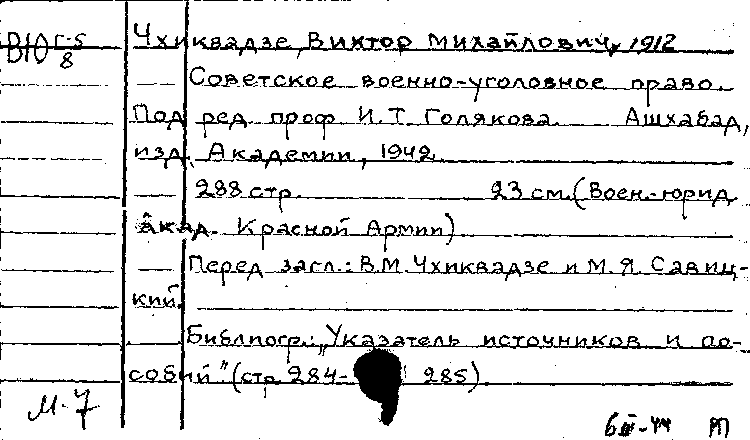 В10 Г-5/8
Чхиквадзе, Виктор Михайлович, 1912
Советское военно-уголовное право.
Под ред. проф. И.Т. Голякова. Ашхабад,
изд. Академии, 1942.
288 стр. 23 см. (Воен.-юрид.
акад. Красной Армии).
Перед загл.: В.М. Чхиквадзе и М.Я. Савиц-
кий.
Библиогр.: „Указатель источников и по-
собий" (стр. 284- 285).
М-7
6III-44